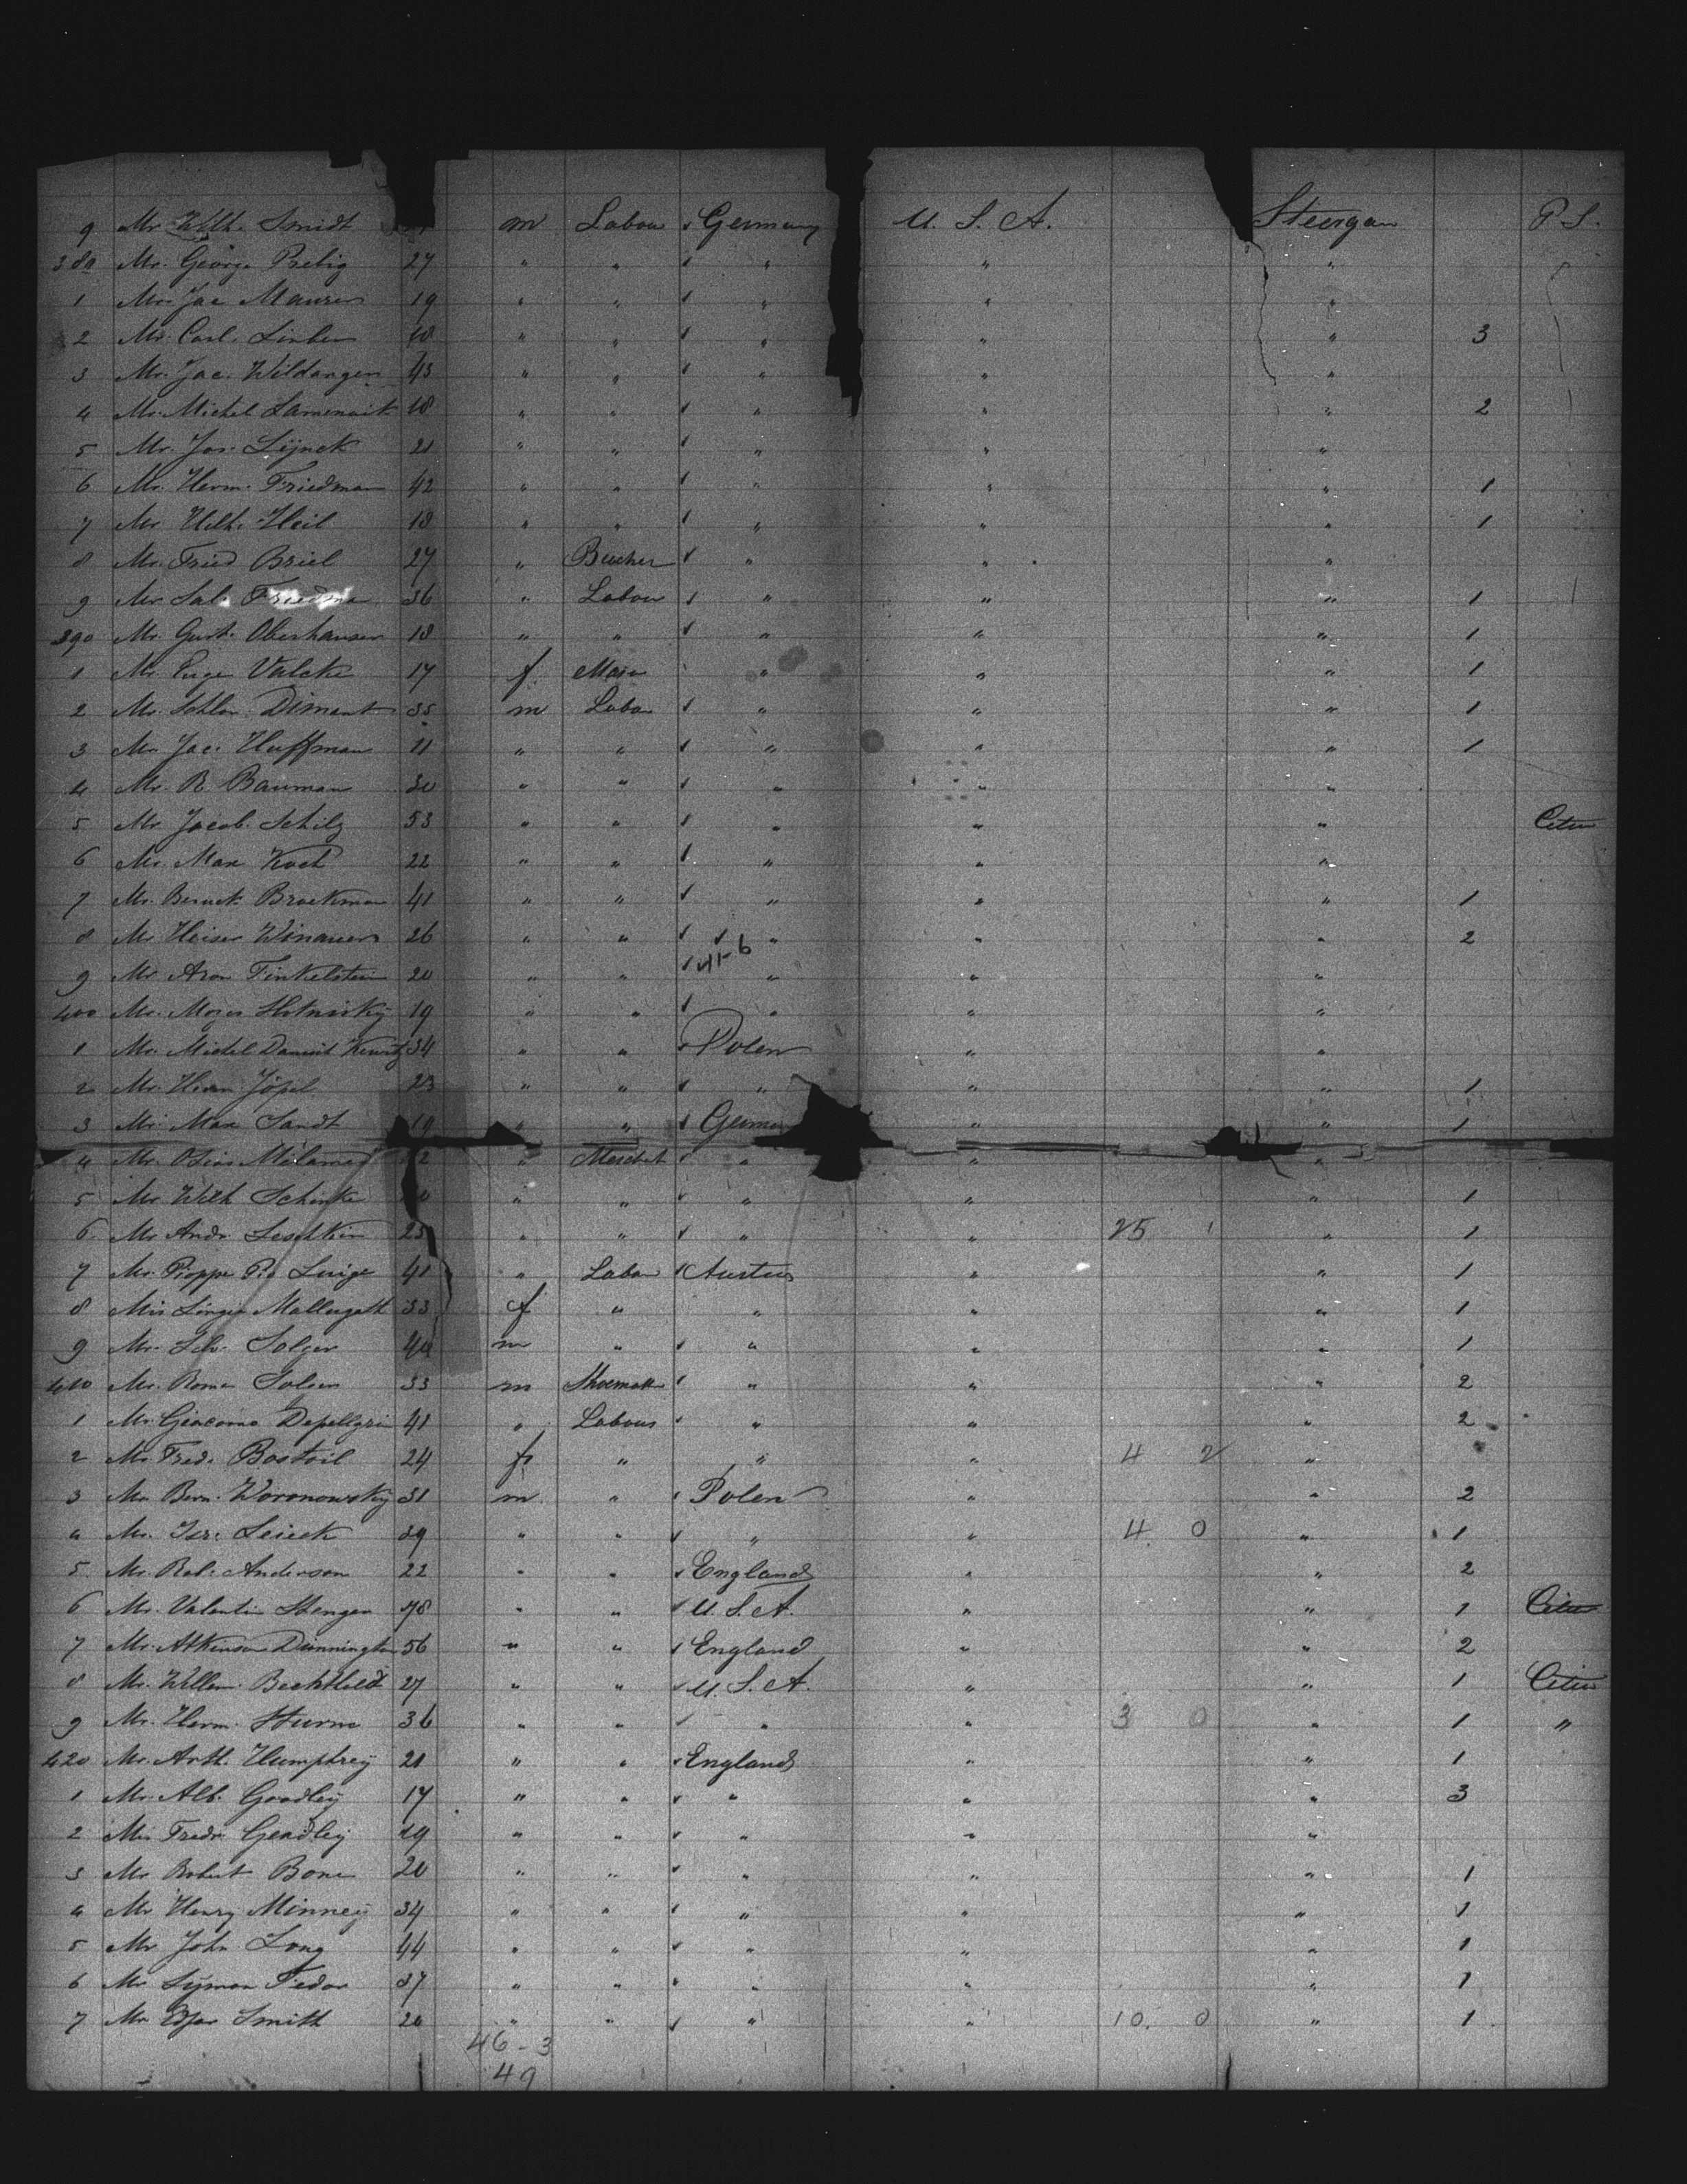 9 Mr Wilh. Smidt m Labou Germany U. S. A. Steergan P. S.
380 Mr. George Prebig 27 " " " " "
1 Mr Jac Maurer 19 " " " " "
2 Mr. Carl. 18 " " " " " 3
3 Mr. Jac. Wildangen 43 " " " " "
4 Mr. Michel 18 " " " " " 2
5 Mr. Jos. Lijnck 21 " " " " "
6 Mr. Herm. Friedman 42 " " " " " 1
7 Mr Wilh. Heil 18 " " " " " 1
8 Mr. Fried Briel 27 " " " "
9 Mr Sal. Friedma 36 " Labou " " " 1
390 Mr. Gust. Oberhauser 18 " " " " " 1
1 Mr Valcke 17 f " " " 1
2 Mr. Dimant 35 m Labou " " " 1
3 Mr Jac. Huffman 21 " " " " " 1
4 Mr. R. Bauman 30 " " " " "
5 Mr Jacob. Schilz 53 " " " " " Citin
6 Mr. Max Koch 22 " " " " "
7 Mr. Brockman 41 " " " " " 1
8 Mr Heiser Winauer 26 " " " " " 2
41-6
9 Mr Aron Finkelstein 20 " " " " "
400 Mr. Mozes 19 " " " " "
1 Mr. Michel 34 " " Polen " "
2 Mr. Herm. Jöpel 23 " " " " " 1
3 Mr. Max Sandt 19 " " German " " 1
4 Mr. " " " "
5 Mr Wilh " " " " " 1
6 Mr Andr. 25 " " " " 25 1 " 1
7 Mr. Luige 41 " Labou Austria " " 1
8 Mis 33 f " " " " 1
9 Mr. Solger m " " " " 1
410 Mr. Roman 33 m Shoemak " " " 2
1 Mr. Giacomo Depellgrin 41 " Labour " " " 2
2 Mr Fred. 24 f " " " 4 2 "
3 Mr Bern. Woronowskij 31 m " Polen " " 2
4 Mr. Isr. 39 " " " " 4 0 " 1
5 Mr. Rob. Anderson 22 " " England " " 2
6 Mr. Valentin Stenger 48 " " U. S. A. " " 1 Citin
7 Mr. Atkinson Dunnington 56 " " England " " 2
8 Mr. Willem. Bechthold 27 " " U. S. A. " " 1 Citin
9 Mr. Herm. Sturm 36 " " " " 3 0 " 1 "
420 Mr. Arth. Humphrey 21 " " England " " 1
1 Mr. Alb. Goodley 17 " " " " " 3
2 Mr. Fredr. Goodley 19 " " " " "
3 Mr Robert Bone 20 " " " " " 1
4 Mr Henry Minney 34 " " " " " 1
5 Mr John Long 44 " " " " " 1
6 Mr Sijmon Fedor 37 " " " " " 1
7 Mr Edgar Smith 20 " " " " 10. 0 " 1
46-3
49